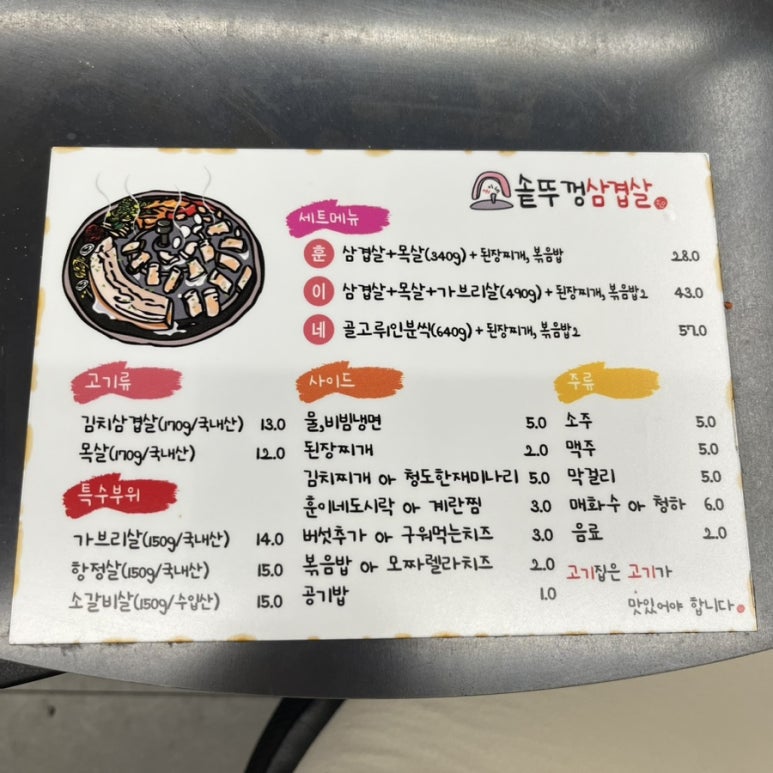 솥뚜껑삼겹살
세트메뉴
훈 삼겹살+목살(340g) + 된장찌개, 볶음밥 28.0
이 삼겹살+목살+가브리살(490g) + 된장찌개, 볶음밥2 43.0
네 골고루1인분씩(640g) + 된장찌개, 볶음밥2 57.0
고기류
김치삼겹살(170g/국내산) 13.0
목살(170g/국내산) 12.0
특수부위
가브리살(150g/국내산) 14.0
항정살(150g/국내산) 15.0
소갈비살(150g/수입산) 15.0
사이드
물,비빔냉면 5.0
된장찌개 2.0
김치찌개 or 청도한재미나리 5.0
훈이네도시락 or 계란찜 3.0
버섯추가 or 구워먹는치즈 3.0
볶음밥 or 모짜렐라치즈 2.0
공기밥 1.0
주류
소주 5.0
맥주 5.0
막걸리 5.0
매화수 or 청하 6.0
음료 2.0
고기집은 고기가
맛있어야 합니다